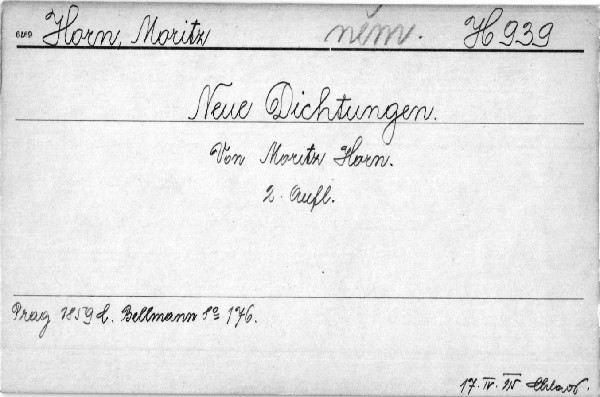 Horn, Moritz něm. H 939
Neue Dichtungen.
Von Moritz Horn.
2. Aufl.
Prag 1859 C. Bellmann 8º 176.
17. IV. 25